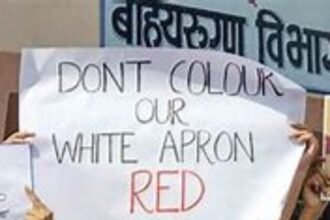 बाह्यरुग्ण विभाग
DONT COLOUR
OUR
WHITE APRON
RED